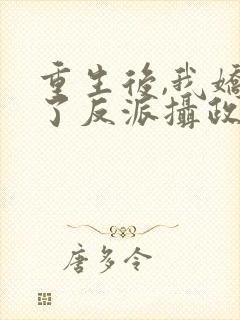 重生後,我
了反派攝政
唐多令